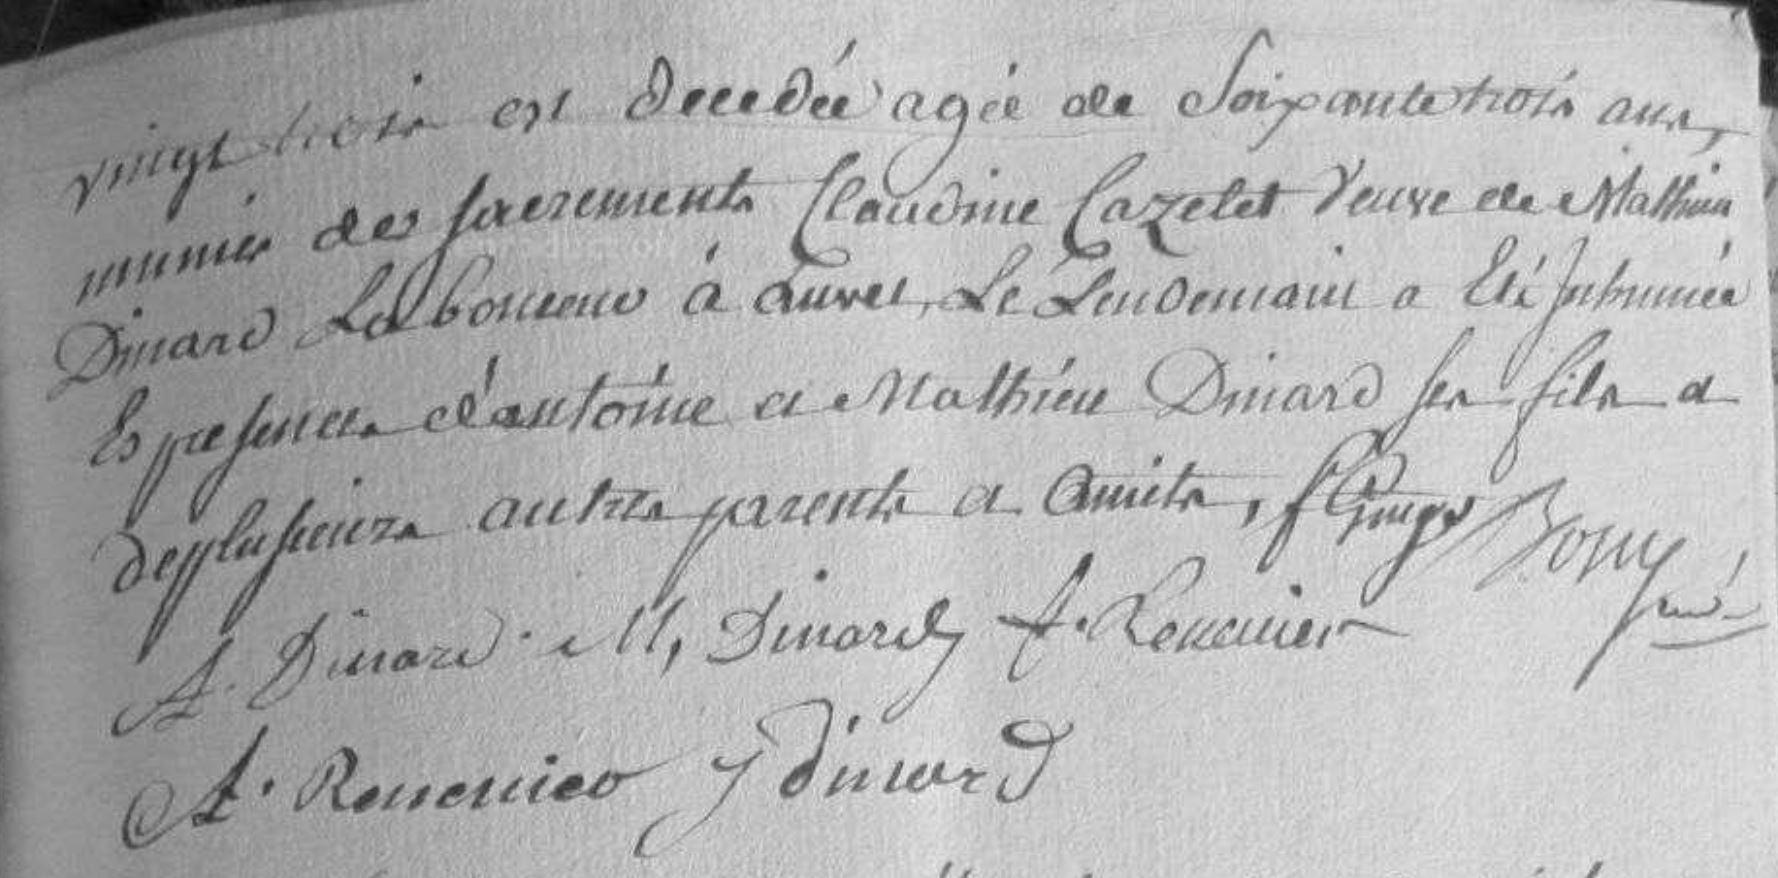 vingt trois est decedée agée de Soixante trois ans,
munie des sacrements Claudine Cazelet Veuve de Mathieu
Dinard Laboureur à Auvet, Le Lendemain a Eté Inhumée
En presence d'antoine et Mathieu Dinard ses fils et
de plusieurs autres parents et Amits, Bony
A. Dinard M, Dinard A. Renenier
A. Renenier J dinard